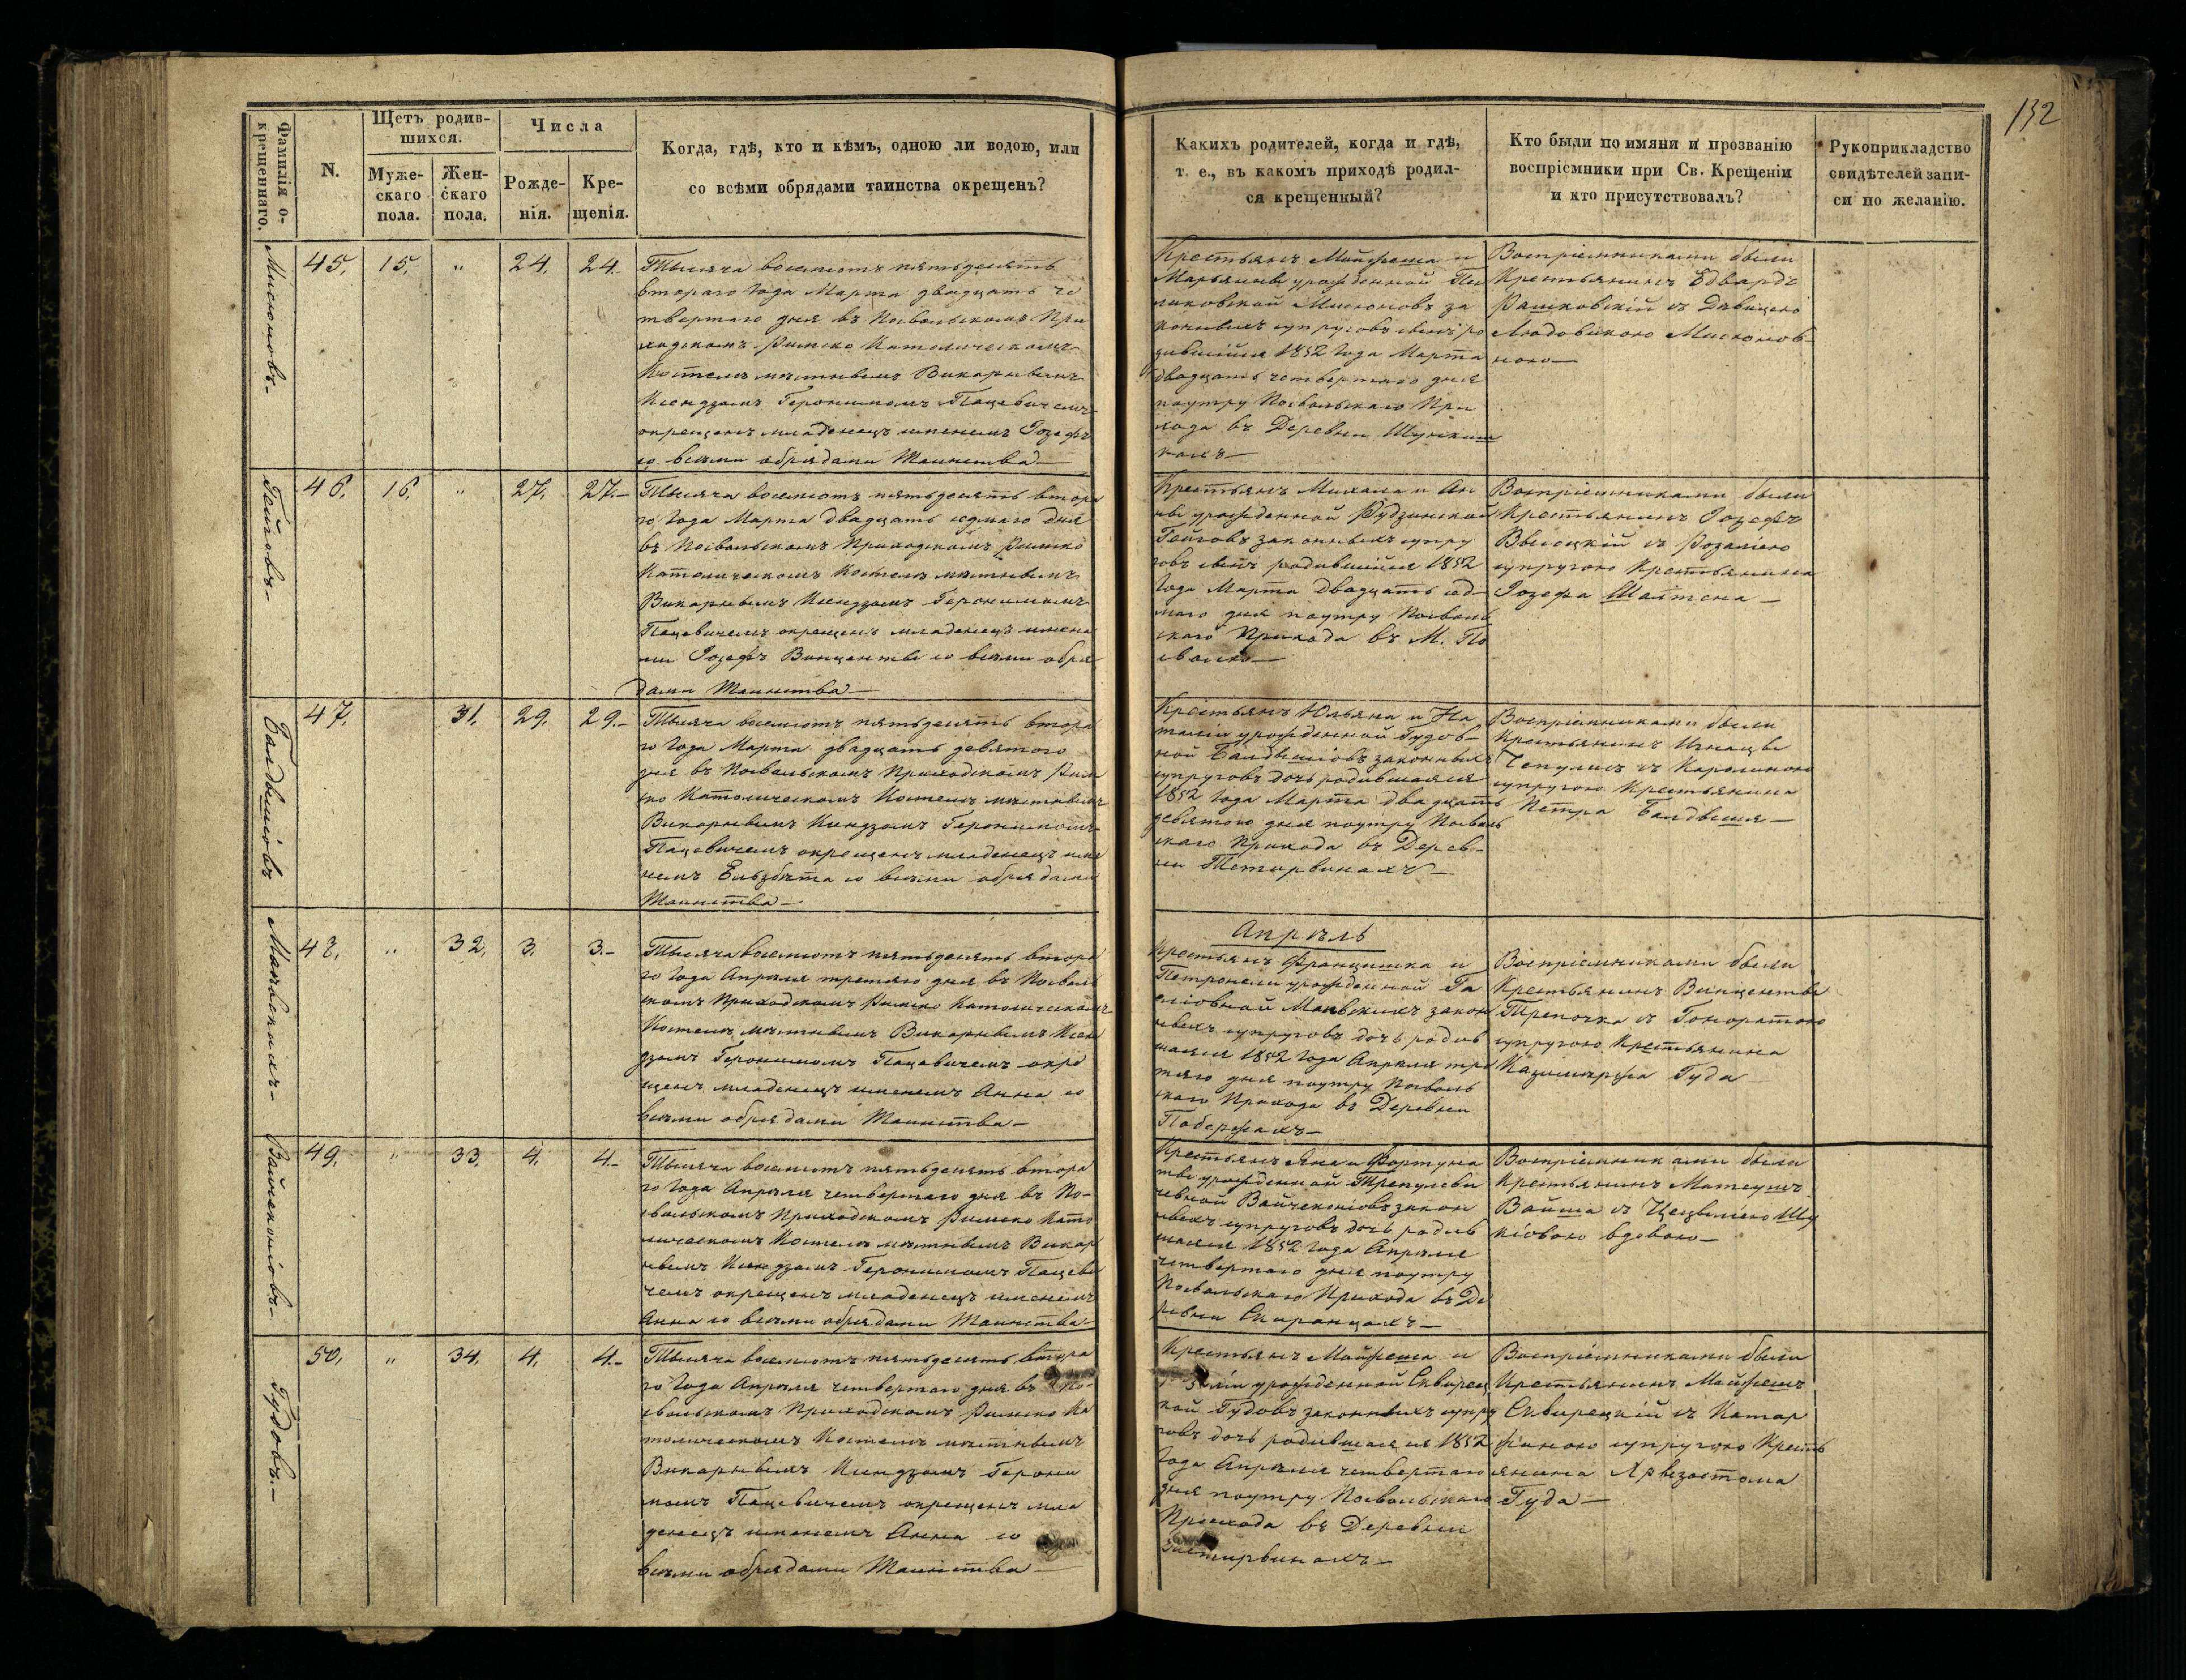 132
Фамилія о-
крещеннаго.
N.
Щетъ родив-
шихся.
Муже-
скаго
пола.
Жен-
скаго
пола.
Числа
Рожде-
нія.
Кре-
щенія.
Когда, гдѣ, кто и кѣмъ, одною ли водою, или
со всѣми обрядами таинства окрещенъ?
Какихъ родителей, когда и гдѣ,
т. е., въ какомъ приходѣ родил-
ся крещенный?
Кто были по имяни и прозванію
воспріемники при Св. Крещеніи
и кто присутствовалъ?
Рукоприкладство
свидѣтелей запи-
си по желанію.
Мисюновъ-
45. 15. " 24. 24.
Тысяча восемсотъ пятьдесятъ
втораго Года Марта двадцать че
твертаго дня въ Посвольскомъ При
ходскомъ Римско Католическомъ
Костелѣ мѣстнымъ Викарнымъ
Ксендзомъ Геронимомъ Пацевичемъ
окрещенъ младенецъ именемъ Іозефъ
со всѣми обрядами Таинства—
Крестьянъ Матеуша и
Марьянны урожденной
Мисюновъ за
конныхъ супруговъ сынъ ро
дившійся 1852 Года Марта
двадцать четвертаго дня
поутру Посвольскаго При
хода въ Деревни
Воспріемниками были
Крестьянинъ Едвардъ
Рашковскій съ Дѣвицею
Людовикою Мисюнов-
ною—
Гейговъ—
46. 16. " 27. 27.—
Тысяча восемсотъ пятьдесятъ втора
го Года Марта двадцать седмаго дня
въ Посвольскомъ Приходскомъ Римско
Католическомъ Костелѣ мѣстнымъ
Викарнымъ Ксендзомъ Геронимомъ
Пацевичемъ окрещенъ младенецъ имена
ми Іозефъ Винценты со всѣми обря
дами Таинства—
Крестьянъ Михала и Ан
ны урожденной Рудзинской
Гейговъ законныхъ супру
говъ сынъ родившійся 1852
Года Марта двадцать сед-
маго дня поутру Посволь
скаго Прихода въ М. По
сволю—
Воспріемниками были
Крестьянинъ Іозефъ
Высоцкій съ Розаліею
супругою Крестьянина
Іозефа Шалтена—
Балдышіовъ
47. 31. 29. 29.—
Тысяча восемсотъ пятьдесятъ втора
го Года Марта двадцать девятого
дня въ Посвольскомъ Приходскомъ Рим
ско Католическомъ Костелѣ мѣстнымъ
Викарнымъ Ксендзомъ Геронимомъ
Пацевичемъ окрещенъ младенецъ име
немъ Ельзбѣта со всѣми обрядами
Таинства—
Крестьянъ Юльяна и На
таліи урожденной Гудов-
ной Балдышіовъ законныхъ
супруговъ дочь родившаяся
1852 Года Марта двадцать
девятого дня поутру Посволь
скаго Прихода въ Дерев-
ни Тетирвинахъ—
Воспріемниками были
Крестьянинъ Игнацы
Чепулисъ съ Каролиною
супругою Крестьянина
Петра Балдыша—
Маньскихъ-
48. " 32. 3. 3.—
Тысяча восемсотъ пятьдесятъ втора
го Года Апрѣля третяго дня въ Посволь
скомъ Приходскомъ Римско Католическомъ
Костелѣ мѣстнымъ Викарнымъ Ксен
дзомъ Геронимомъ Пацевичемъ окре
щенъ младенецъ именемъ Анна со
всѣми обрядами Таинства—
Апрѣль
Крестьянъ Францишка и
Петронели урожденной Га
законъ
ныхъ супруговъ дочь родив
шаяся 1852 Года Апрѣля тре
тяго дня поутру Посволь
скаго Прихода въ Деревни
Побержахъ—
Воспріемниками были
Крестьянинъ Винценты
Трепочка съ Гоноратою
супругою Крестьянина
Казимержа Гуда
Вайчеконіовъ—
49. " 33. 4. 4.—
Тысяча восемсотъ пятьдесятъ втора
го Года Апрѣля четвертаго дня въ По-
свольскомъ Приходскомъ Римско Като
лическомъ Костелѣ мѣстнымъ Викар
нымъ Ксендзомъ Геронимомъ Пацеви
чемъ окрещенъ младенецъ именемъ
Анна со всѣми обрядами Таинства—
Крестьянъ Яна и Фортуна
ты урожденной Трепулеви
чевной Вайчеконіовъ закон
ныхъ супруговъ дочь родив
шаяся 1852 Года Апрѣля
четвертаго дня поутру
Посвольскаго Прихода въ Де
ревни Скиранцахъ—
Воспріемниками были
Крестьянинъ Матеушъ
Вайша съ Цецыліею Шу
кіовою вдовою—
Гудовъ.—
50. " 34. 4. 4.—
Тысяча восемсотъ пятьдесятъ втора
го Года Апрѣля четвертаго дня въ По-
свольскомъ Приходскомъ Римско Ка
толическомъ Костелѣ мѣстнымъ
Викарнымъ Ксендзомъ Герони
момъ Пацевичемъ окрещенъ мла
денецъ именемъ Анна со
всѣми обрядами Таинства—
Крестьянъ Матеуша и
урожденной Сквирец
кой Гудовъ законныхъ супру
говъ дочь родившаяся 1852
Года Апрѣля четвертаго
дня поутру Посвольскаго
Прихода въ Деревни
Тетирвинахъ—
Воспріемниками были
Крестьянинъ Матеушъ
Сквирецкій съ Катар
жиною супругою Кресть
янина Хрызостома
Гуда—